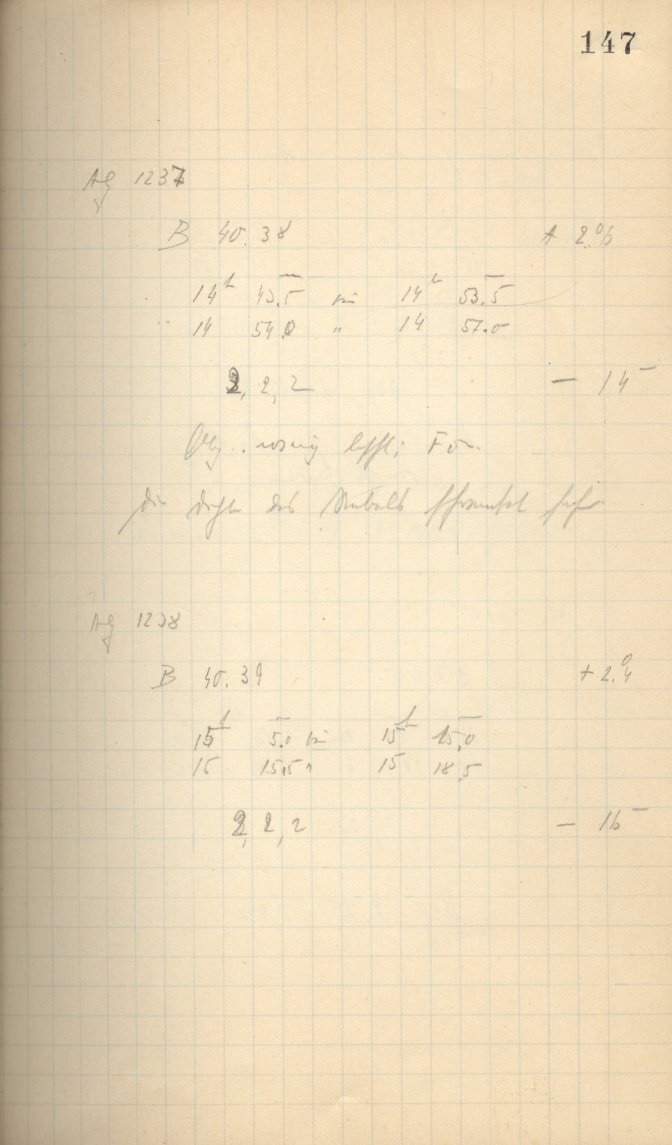 147
AG 1237
B 40.38 + 2.°6
14ʰ 43.5ᵐ bis 14ʰ 53.5ᵐ
14 54.0 " 14 57.0
2, 2, 2 — 14ᵐ
Die des Nebels
AG 1238
B 40.39 + 2.°4
15ʰ 5.0ᵐ bis 15ʰ 15.0ᵐ
15 15.5 " 15 18.5
2, 2, 2 — 16ᵐ